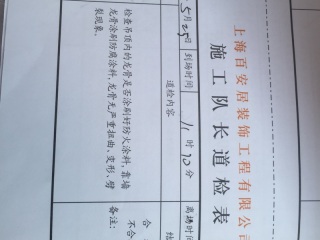 上海百安居装饰工程有限公司
施工队长道检表
5月25日 到场时间 11时10分 离场时间
道检内容
检查吊顶内的龙骨是否涂刷好防火涂料，靠墙
龙骨涂刷防腐涂料，龙骨无严重扭曲、变形、劈
裂现象。
合
不合
备注：